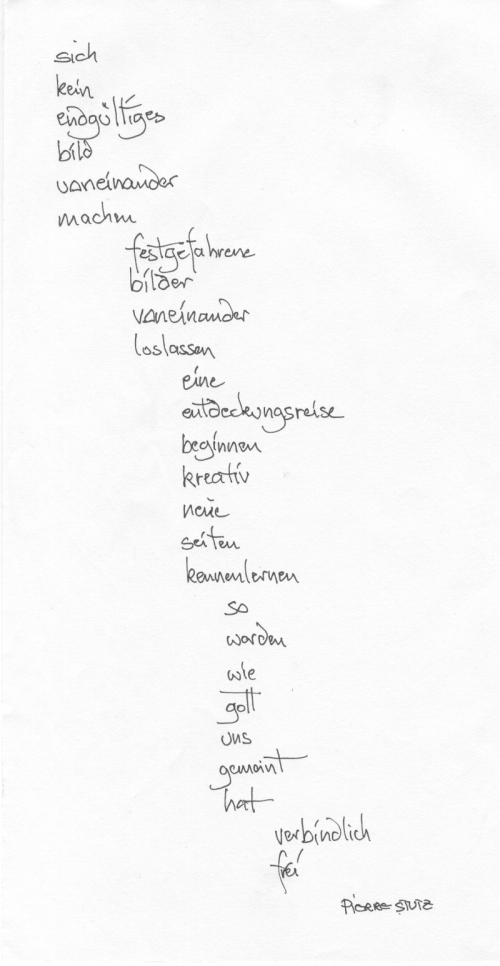 sich
kein
endgültiges
bild
voneinander
machen
festgefahrene
bilder
voneinander
loslassen
eine
entdeckungsreise
beginnen
kreativ
neue
seiten
kennenlernen
so
werden
wie
gott
uns
gemeint
hat
verbindlich
frei
PIERRE STUTZ